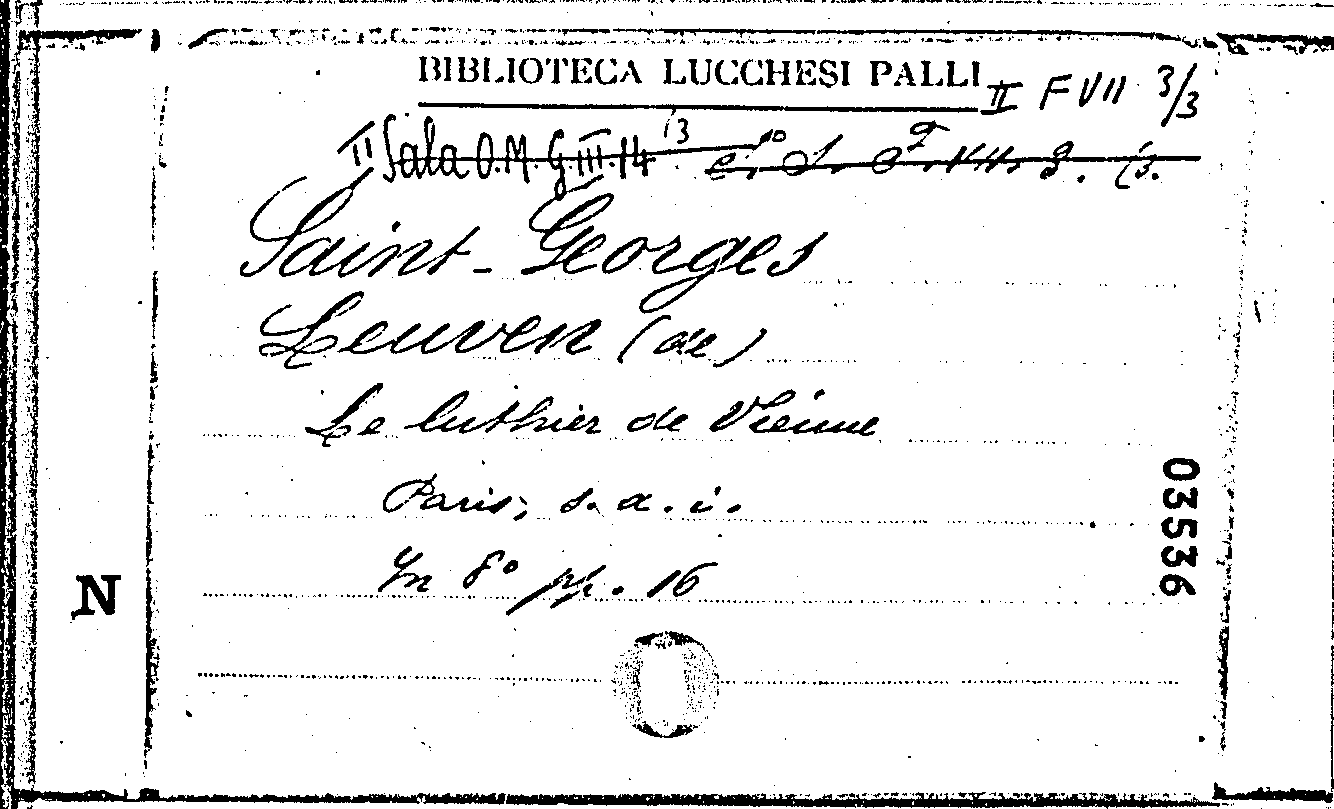 BIBLIOTECA LUCCHESI PALLI
II F VII 3/3
II Sala O.M. G.III.14 13
F. VII. 3. 13.
Saint-Georges
Leuven (de)
Le luthier de Vienne
Paris, s. a. i.
In 8° pp. 16
03536
N